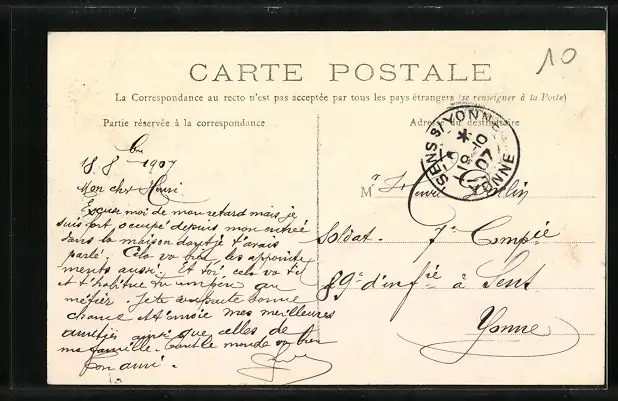 10
CARTE POSTALE
La Correspondance au recto n'est pas acceptée par tous les pays étrangers (se renseigner à la Poste)
Partie réservée à la correspondance
Adresse du destinataire
SENS s/YONNE
YONNE
19-10
07
18 8bre 1907
Mon cher Henri
Excuse moi de mon retard mais je
suis fort occupé depuis mon entrée
dans la maison dont je t'avais
parlé. Cela va bien, les appointe
ments aussi. Et toi, cela va t'il
et t'habitue tu un peu au
métier. Je te souhaite bonne
chance et t'envoie mes meilleures
amitiés ainsi que celles de
ma famille. Tout le monde va bien
Ton ami.
M
Henri
Soldat. 7e Compie
89e d'infie à Sens
Yonne